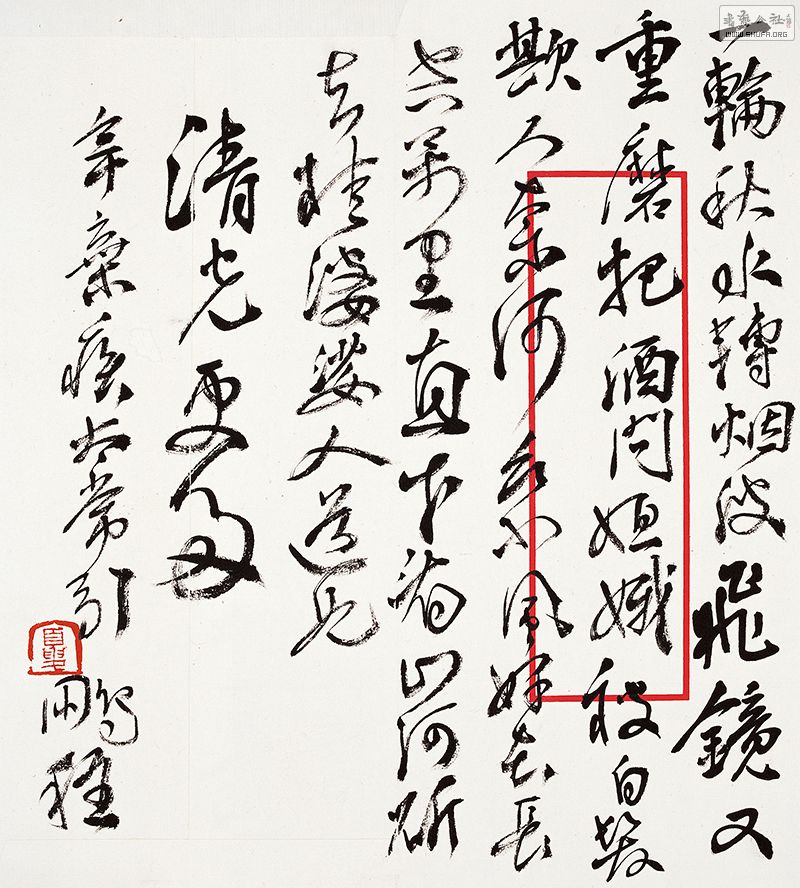 一輪秋水轉烟波飛鏡又
重磨把酒問姮娥被白髮
欺人奈何乘風好去長
空萬里直下看山河斫
去桂婆娑人道是
清光更多
辛棄疾太常引鵬
書藝公社
WWW.SHUFA.ORG